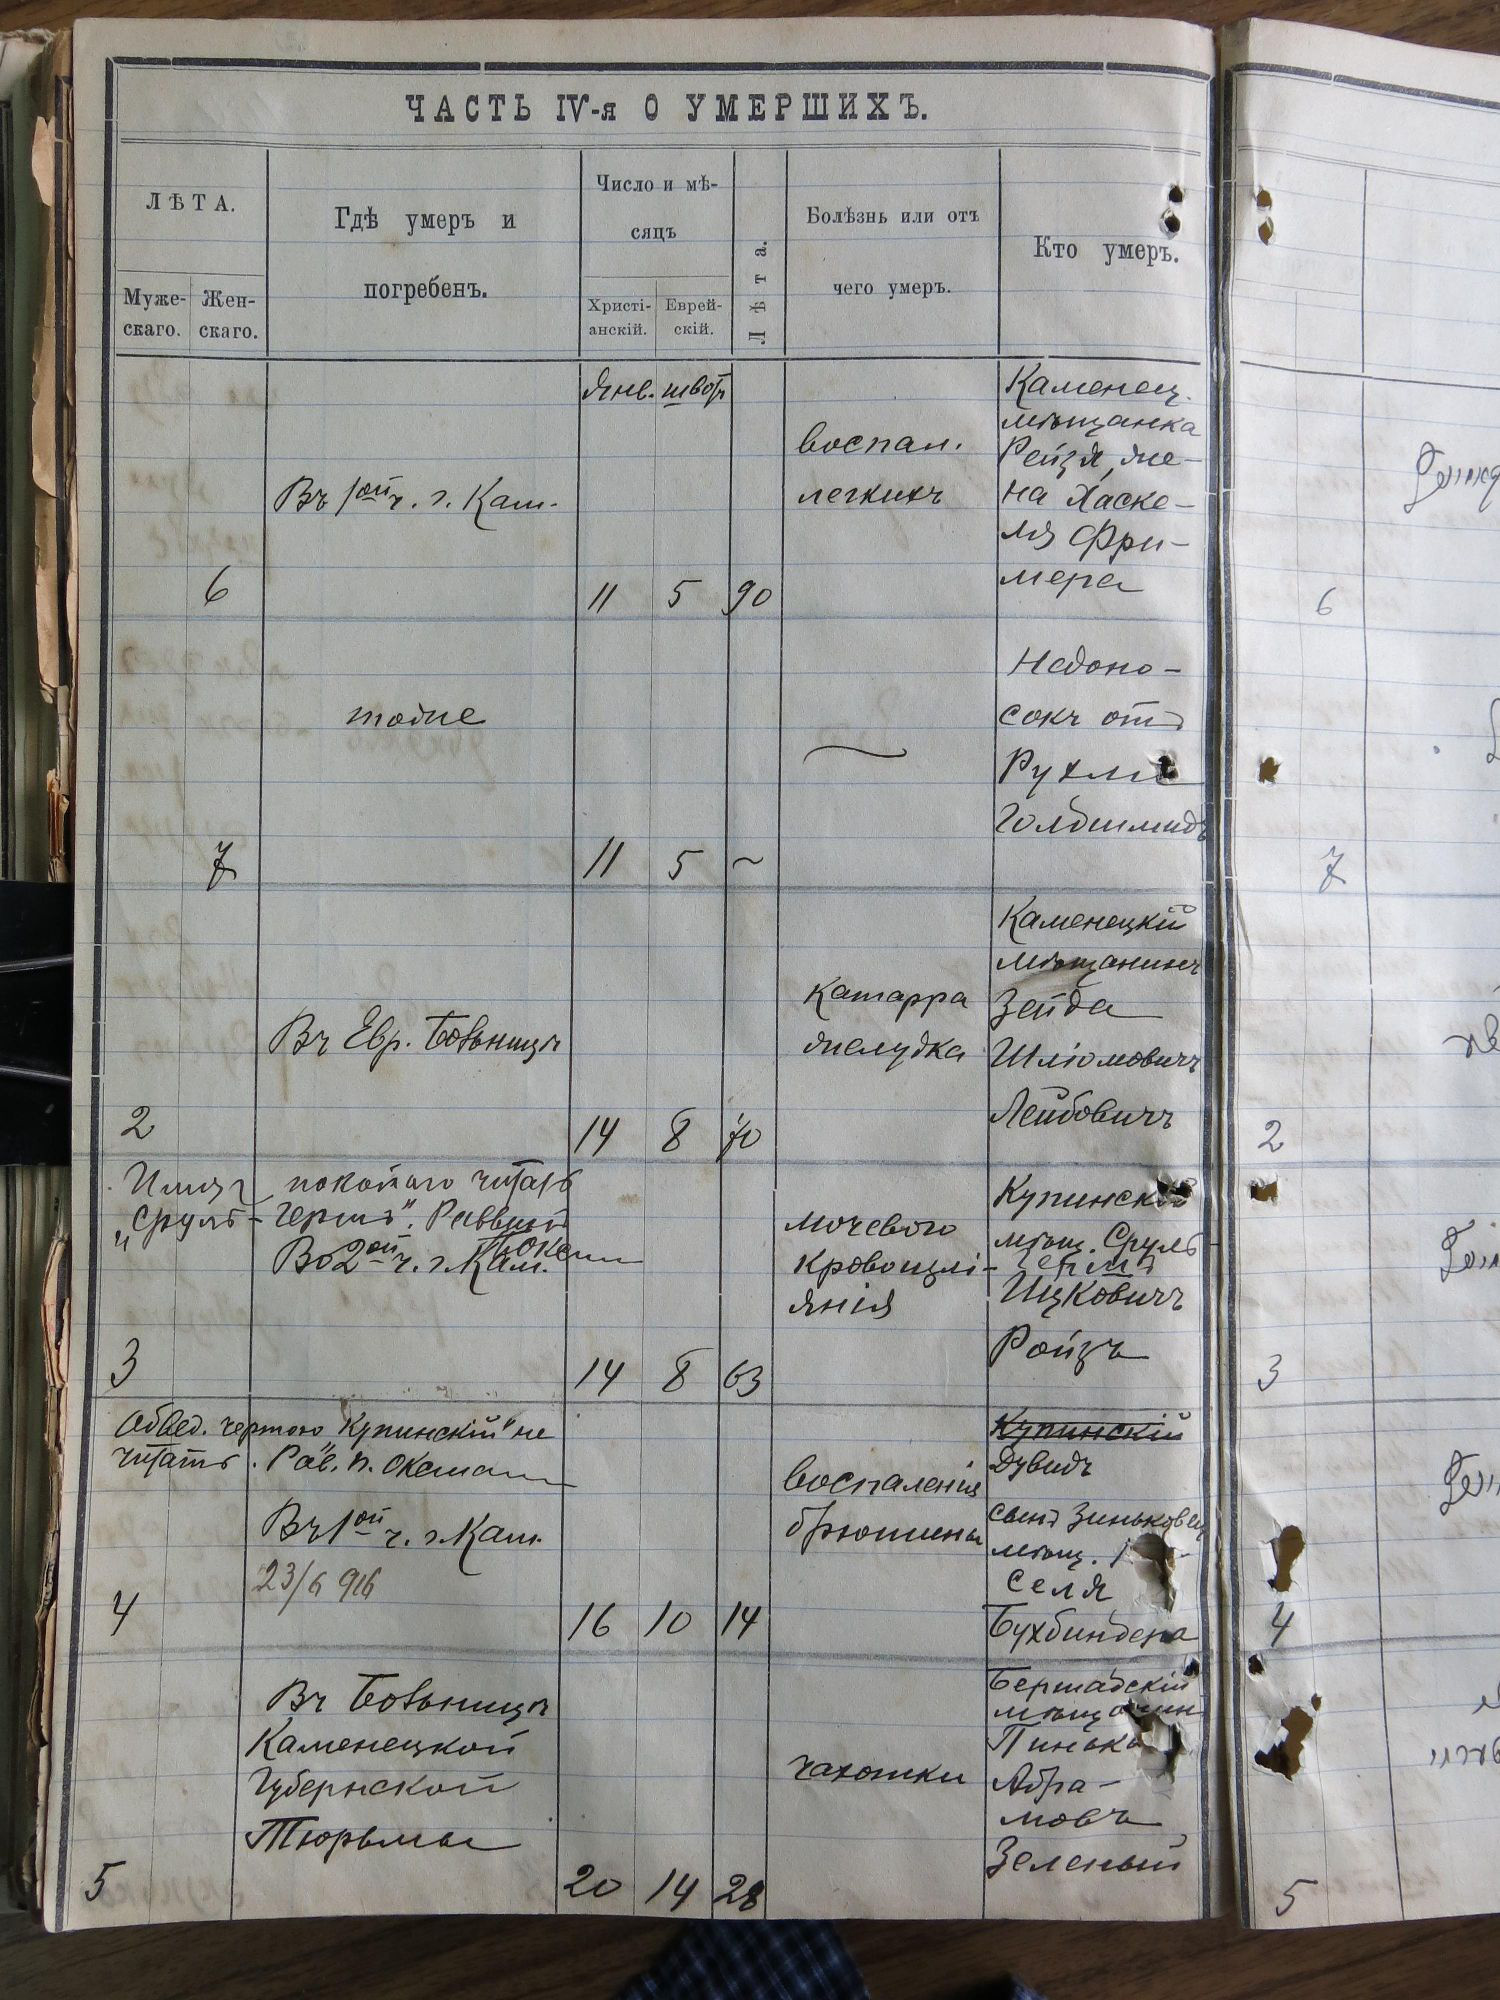 ЧАСТЬ IV-я О УМЕРШИХЪ.
ЛѢТА.
Муже-
скаго.
Жен-
скаго.
Гдѣ умеръ и
погребенъ.
Число и мѣ-
сяцъ
Христі-
анскій.
Еврей-
скій.
Лѣта.
Болѣзнь или отъ
чего умеръ.
Кто умеръ.
Янв. швотъ
6
Въ 1ой ч. г. Кам.
11 5 90
воспал.
легкихъ
Каменец.
мѣщанка
Рейзя, же-
на Хаске-
ля Фри-
мера
6
7
тоже
11 5 ~
Недоно-
сокъ отъ
Рухли
Голдшмидъ
7
2
Въ Евр. Больницѣ
14 8 70
Катарра
желудка
Каменецкій
мѣщанинъ
Зейда
Шліомовичъ
Лейбовичъ
2
Имя покойнаго читать
„Сруль-Гершъ". Раввинъ
Оксман
Во 2ой ч. г. Кам.
3
14 8 63
мочевого
кровоизлі-
янія
Купинскій
мѣщ. Сруль-
Гершъ
Ицковичъ
Ройзъ
3
Обвед. чертою „Купинскій" не
читать. Рав. п. Оксман
Въ 1ой ч. г. Кам.
23/6 916
4
16 10 14
воспаленія
брюшины
Купинскій
Дувидъ
сынъ Зиньковец.
мѣщ.
селя
Бухбиндера
4
Въ Больницѣ
Каменецкой
Губернской
Тюрьмы
5
20 14 28
чахотки
Бершадскій
мѣщанин
Пинька
Абра-
мовъ
Зеленый
5